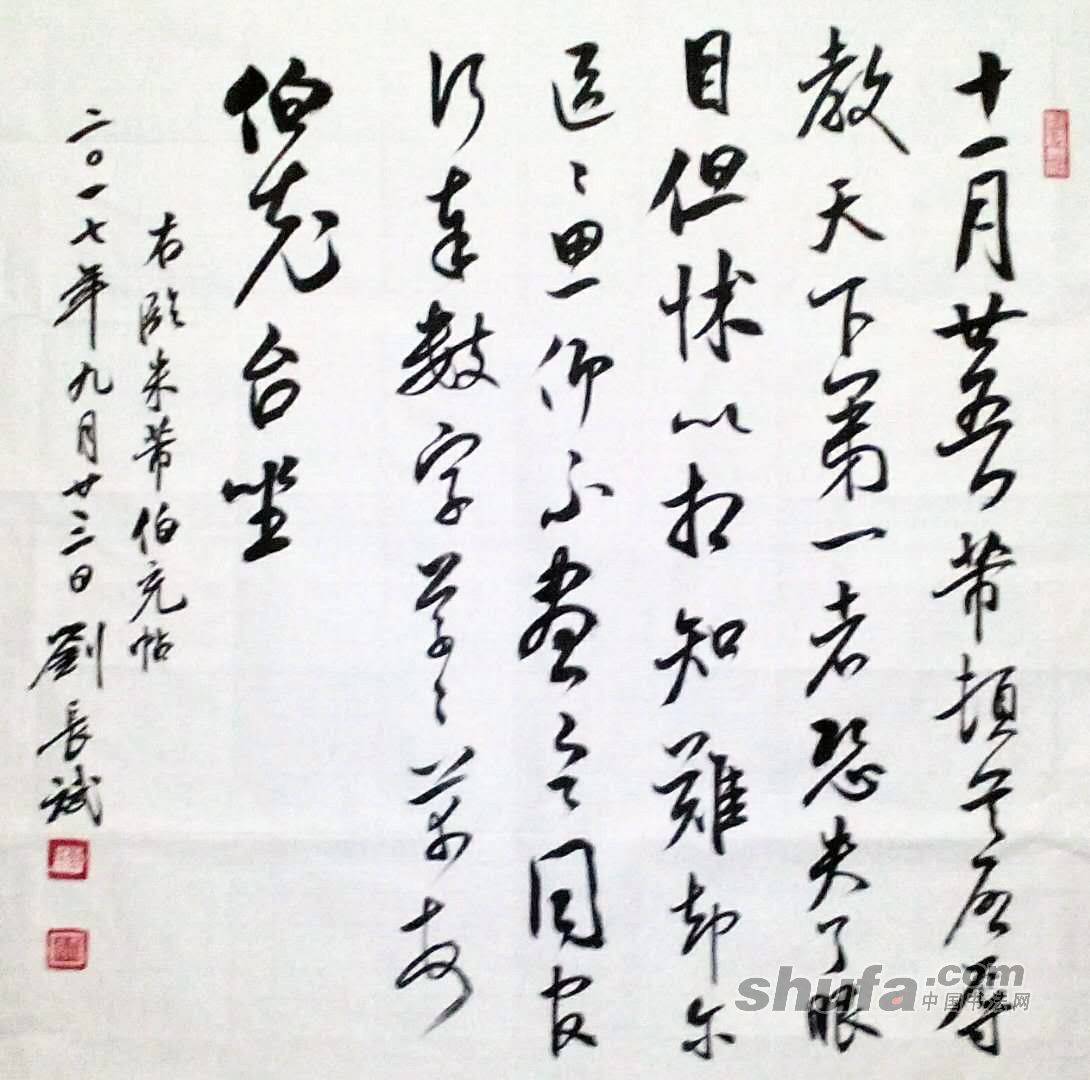 十一月廿五日芾頓首啓辱
教天下第一者恐失了眼
目但怵以相知難却尔
區〻思一仰不盡言同官
行奉數字草〻芾頓首
伯充台坐
右臨米芾伯充帖
二〇一七年九月廿三日劉長斌
shufa.com
中国书法网